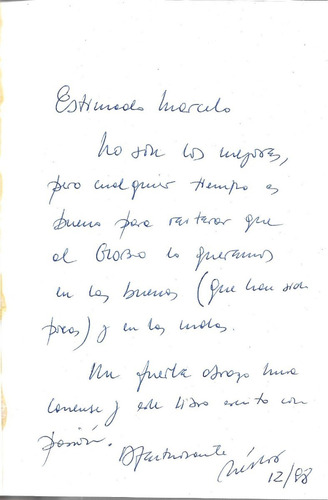 Estimado Marcelo
No son los mejores,
pero cualquier tiempo es
bueno para reiterar que
al Globo lo queremos
en las buenas (que han sido
pocas) y en las malas.
Un fuerte abrazo
y este libro escrito con
pasión.
Afectuosamente
Néstor
12/88